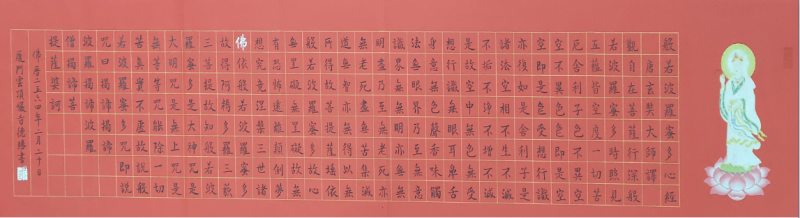 般若波羅蜜多心經
唐玄奘大師譯
觀自在菩薩行深般
若波羅蜜多時照見
五蘊皆空度一切苦
厄舍利子色不異空
空不異色色即是空
空即是色受想行識
亦復如是舍利子是
諸法空相不生不滅
不垢不淨不增不減
是故空中無色無受
想行識無眼耳鼻舌
身意無色聲香味觸
法無眼界乃至無意
識界無無明亦無無
明盡乃至無老死亦
無老死盡無苦集滅
道無智亦無得以無
所得故菩提薩埵依
般若波羅蜜多故心
無罣礙無罣礙故無
有恐怖遠離顛倒夢
想究竟涅槃三世諸
佛依般若波羅蜜多
故得阿耨多羅三藐
三菩提故知般若波
羅蜜多是大神咒是
大明咒是無上咒是
無等等咒能除一切
苦真實不虛故說般
若波羅蜜多咒即說
咒曰揭諦揭諦
波羅揭諦波羅
僧揭諦菩
提薩婆訶
佛曆二五六四年一月二十日
廈門雲頂巖書